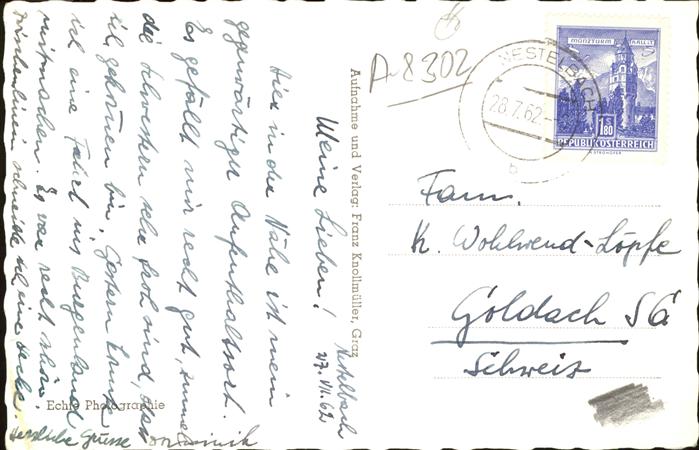 Nestelbach
27. VII. 62
Meine Lieben!
Hier in der Nähe ist mein
gegenwärtiger Aufenthaltsort.
Es gefällt mir recht gut, zumal
die Schwestern sehr froh sind, dass
ich gekommen bin. Gestern konnte
ich eine Fahrt ins Burgenland
mitmachen. Es war recht schön.
schneide ich eine Hecke.
Herzliche Grüsse Dominik
Echte Photographie
Aufnahme und Verlag: Franz Knollmüller, Graz
A-8302
NESTELBACH
28.7.62
b
MÜNZTURM HALL I.T.
S 1.80
REPUBLIK ÖSTERREICH
Fam.
K. Wohlwend-Löpfe
Goldach SG
Schweiz